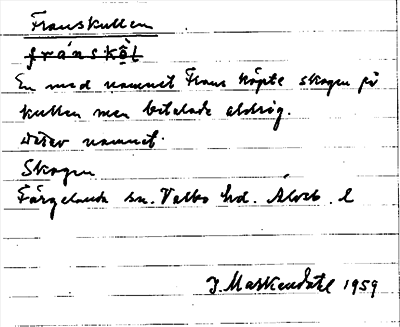 Franskullen
fránskò̀l
En med namnet Frans köpte skogen på
kullen men betalade aldrig.
Därav namnet.
Skogen
Färgelanda sn. Valbo hd. Älvsb. l
J. Markendahl 1959